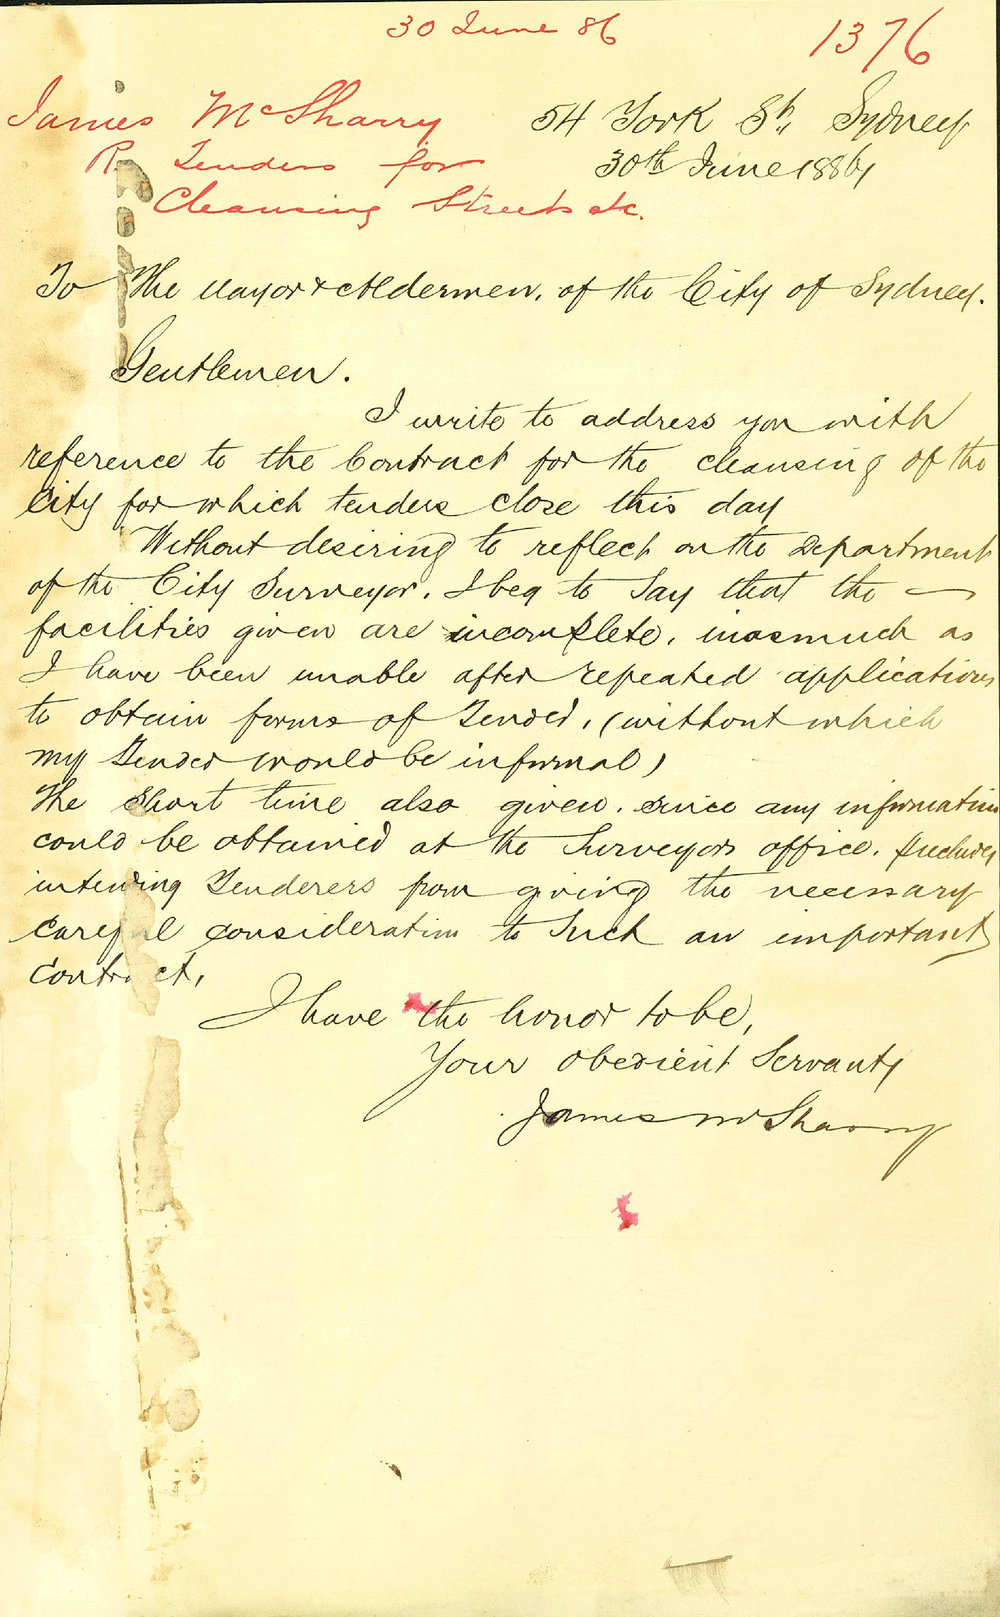 30 June 86
1376
James McSharry
Re Tenders for
Cleansing Streets &c.
54 York St., Sydney
30th June 1886
To The Mayor & Aldermen. of the City of Sydney.
Gentlemen.
I write to address you with
reference to the Contract for the cleansing of the
City for which tenders close this day
Without desiring to reflect on the Department
of the City Surveyor. I beg to Say that the —
facilities given are incomplete. inasmuch as
I have been unable after repeated applications
to obtain forms of Tender. (without which
my Tender would be informal)
The short time also given. since any information
could be obtained at the Surveyors office. precludes
intending Tenderers from giving the necessary
careful consideration to Such an important
contract.
I have the honor to be,
Your obedient Servant
James McSharry